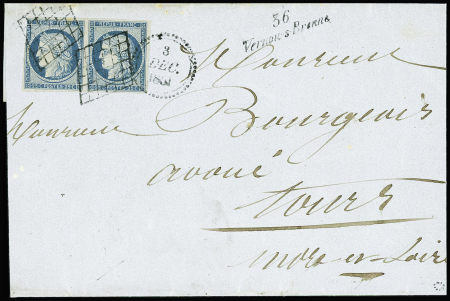 REPUB. FRANC. REPUB. FRANC.
25 POSTES 25 25 POSTES 25
3
DEC.
1851
36
Vernou-s-Brenne
Monsieur
Monsieur Bourgeois
avoué
tours
indre et Loire